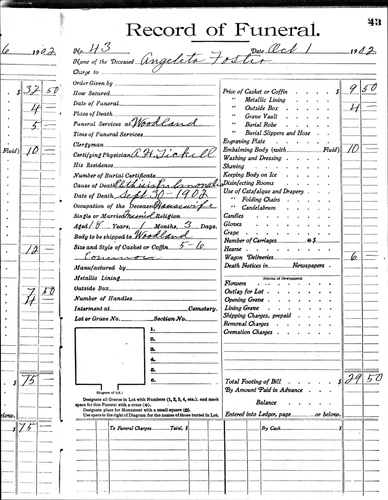 43
Record of Funeral.
6 1902
No. 43 Date Oct 1 1902
Name of the Deceased Angelita Foster
Charge to
Order Given by
How Secured
Date of Funeral
Place of Death
Funeral Services at Woodland
Time of Funeral Services
Clergyman
Certifying Physician A H Tickell
His Residence
Number of Burial Certificate
Cause of Death
Date of Death Sept 30 - 1902
Occupation of the Deceased Housewife
Single or Married Married Religion
Aged 18 Years, 1 Months, 3 Days.
Body to be shipped to Woodland
Size and Style of Casket or Coffin 5-6
Common
Manufactured by
Metallic Lining
Outside Box
Number of Handles
Interment at Cemetery.
Lot or Grave No. Section No.
1.
2.
3.
4.
5.
6.
(Diagram of Lot.)
Designate all Graves in Lot with Numbers (1, 2, 3, 4, etc.), and mark
space for this Funeral with a cross (+).
Designate place for Monument with a small square
Use space to right of Diagram for names of those buried in Lot.
Price of Casket or Coffin $ 9 50
" Metallic Lining
" Outside Box 4 -
" Grave Vault
" Burial Robe
" Burial Slippers and Hose
Engraving Plate
Embalming Body (with Fluid) 10 -
Washing and Dressing
Shaving
Keeping Body on Ice
Disinfecting Rooms
Use of Catafalque and Drapery
" Folding Chairs
" Candelabrum
Candles
Gloves
Crape
Number of Carriages @ $
Hearse
Wagon Deliveries 6 -
Death Notices in Newspapers
Flowers
Outlay for Lot
Opening Grave
Lining Grave
Shipping Charges, prepaid
Removal Charges
Cremation Charges
Total Footing of Bill $ 29 50
By Amount Paid in Advance
Balance
Entered into Ledger, page or below.
To Funeral Charges Total, $
By Cash $
$ 32 50
4 -
5 -
Fluid) 10 -
12
7 50
4 -
$ 75 -
below.
$ 75 -